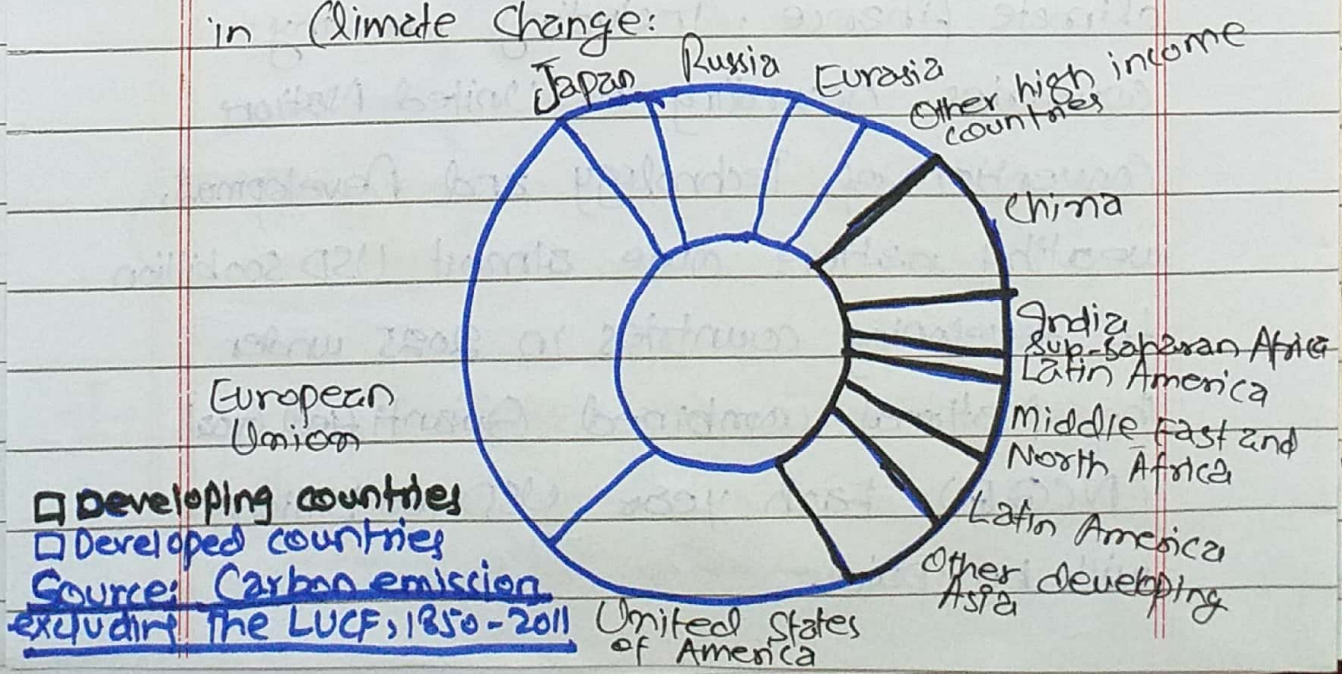 in Climate Change:
Japan
Russia
Eurasia
Other high income
countries
China
India
Sub-saharan Africa
Latin America
Middle East and
North Africa
Latin America
Other developing
Asia
United States
of America
European
Union
Developing countries
Developed countries
Source: Carbon emission
excluding the LUCF, 1850-2011